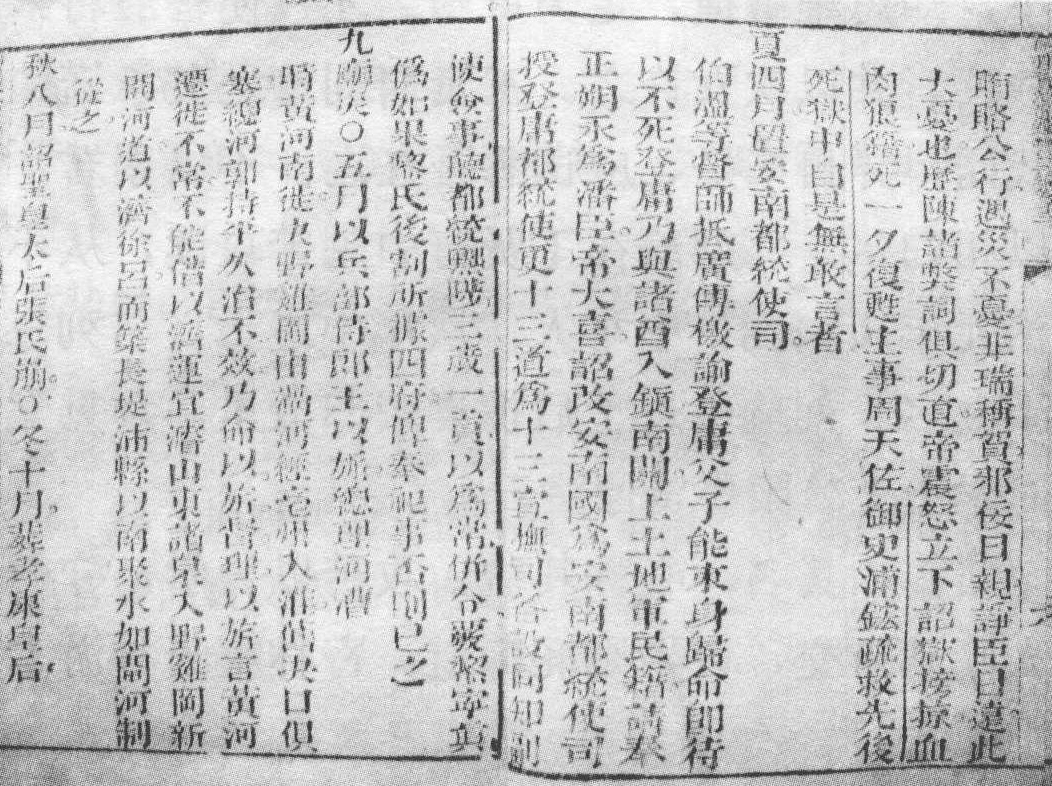 賄賂公行遇災不憂非瑞稱賀邪佞日親諍臣日遠此
大憂也歷陳諸弊詞俱切直帝震怒立下詔獄搒掠血
肉狼籍死一夕復甦主事周天佐御史浦鋐疏救先後
死獄中自是無敢言者
夏四月置安南都統使司
伯溫等督師抵廣傳檄諭登庸父子能束身歸命卽待
以不死登庸乃與諸酋入鎮南關上土地軍民籍請奉
正朔永爲藩臣帝大喜詔改安南國爲安南都統使司
授登庸都統使更十三道爲十三宣撫司各設同知副
使僉事聽都統黜陟三歲一貢以爲常併令覈黎寧眞
僞如果黎氏後割所據四府俾奉祀事否則已之
九廟災○五月以兵部侍郎王以旂總理河漕
時黃河南徙決野雞岡由渦河經亳州入淮舊決口俱
塞總河郭持平久治不效乃命以旂督理以旂言黃河
遷徙不常不能借以濟運宜濬山東諸泉入野雞岡新
開河道以濟徐呂而築長堤沛縣以南聚水如閘河制
從之
秋八月昭聖皇太后張氏崩○冬十月葬孝康皇后